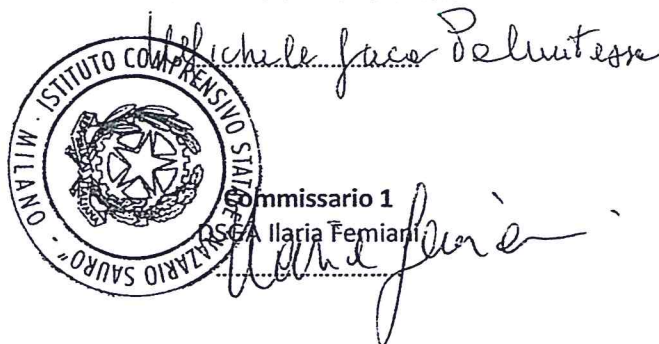 Michele
ISTITUTO COMPRENSIVO STATALE "NAZARIO SAURO" - MILANO
Commissario 1
DSGA Ilaria Femiani
Ilaria Femiani